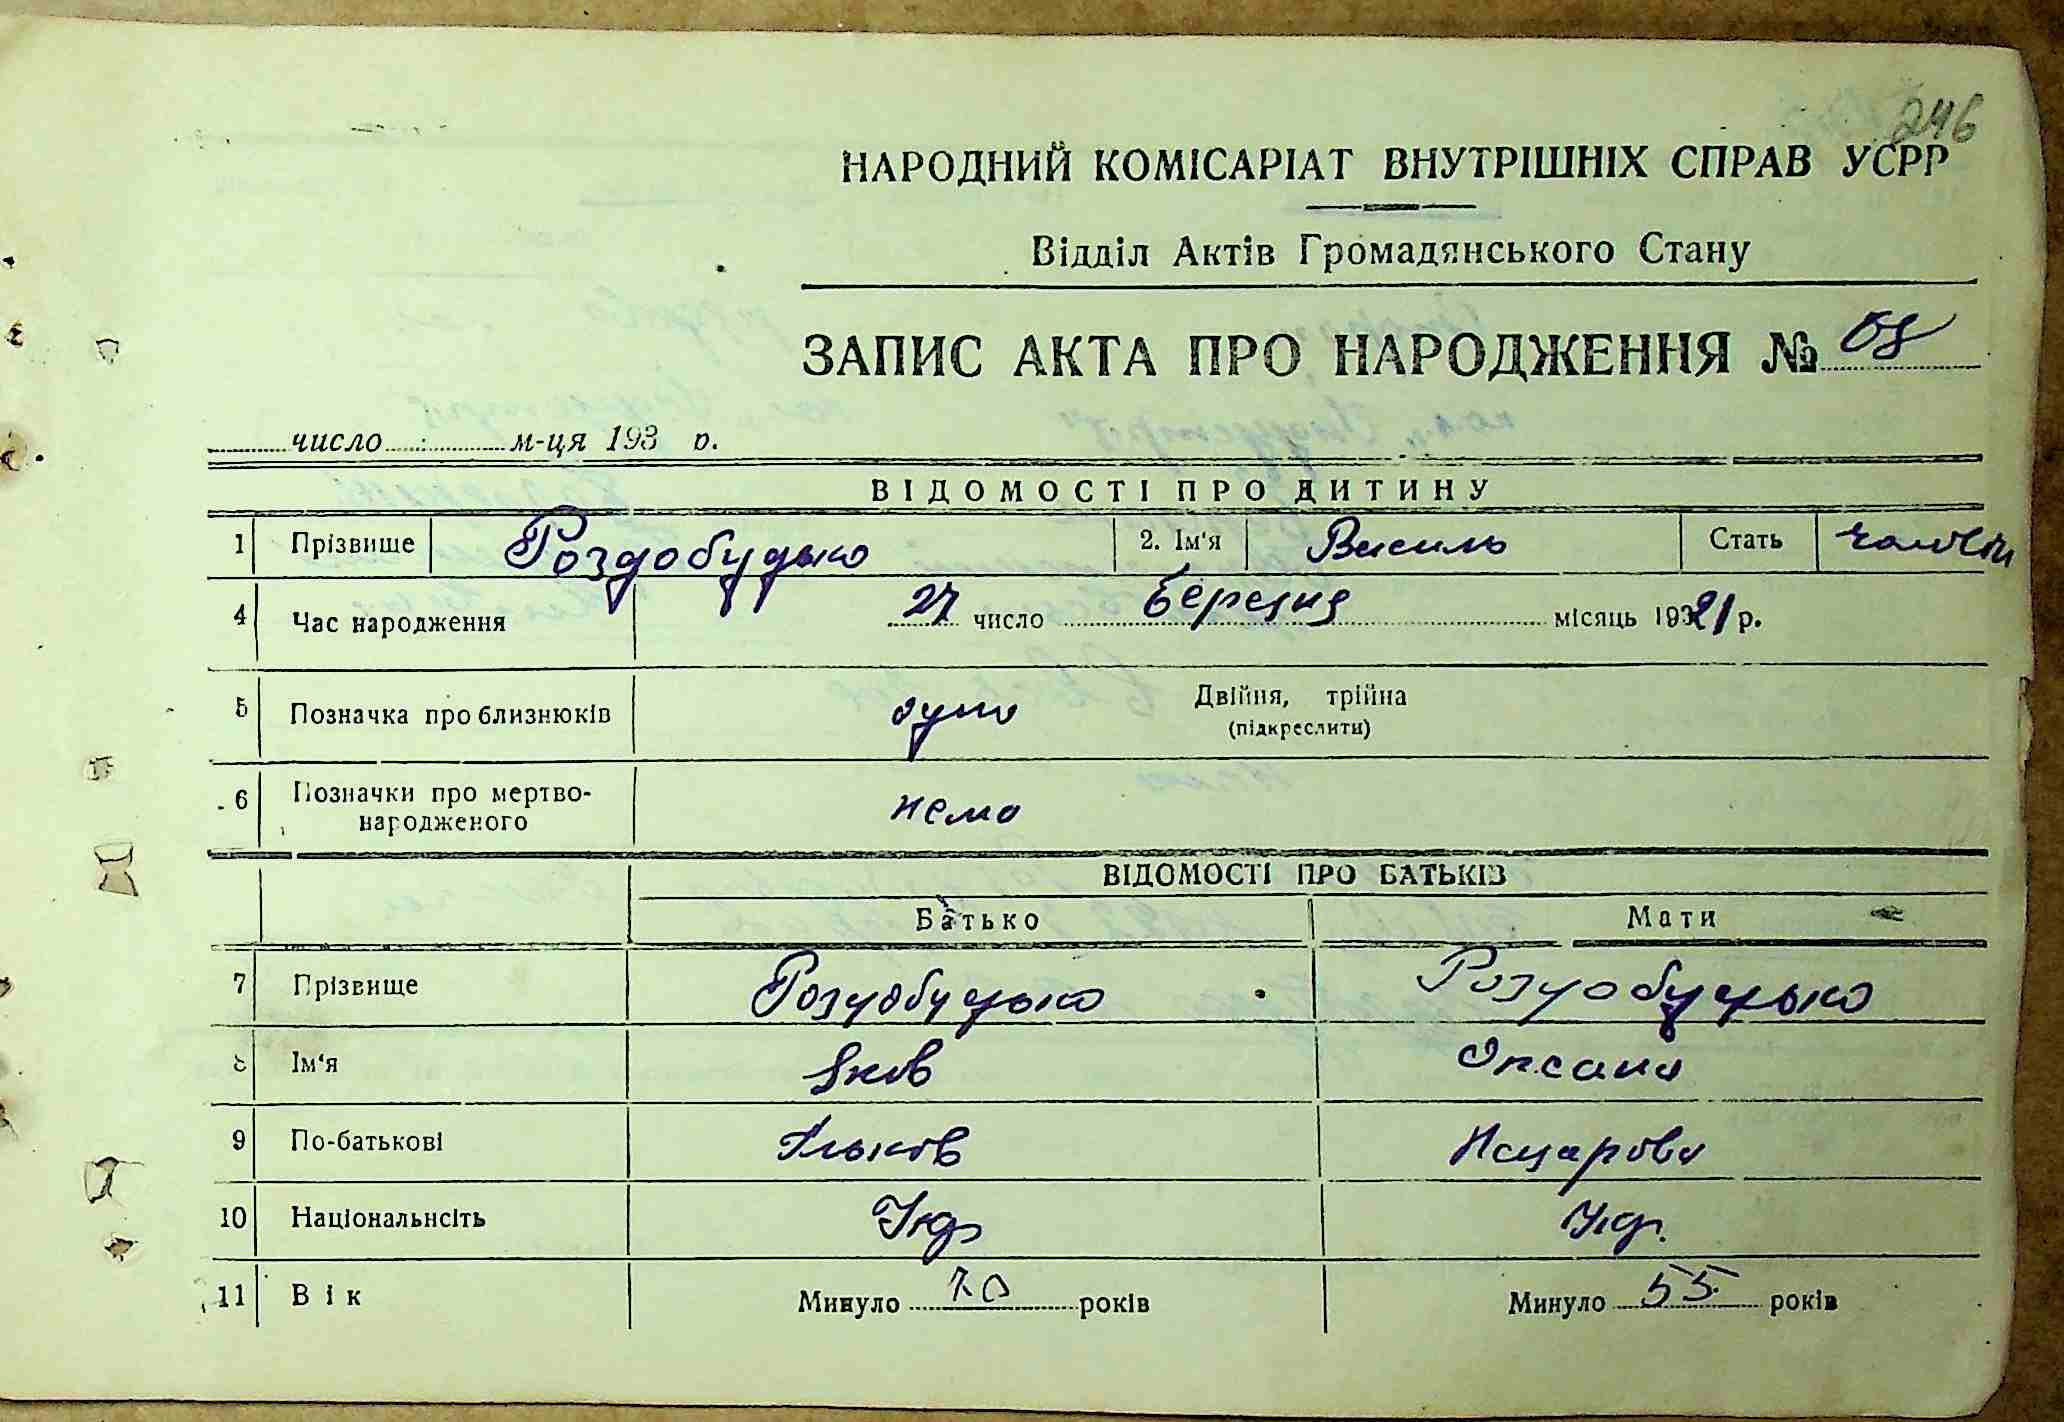 246
НАРОДНИЙ КОМІСАРІАТ ВНУТРІШНІХ СПРАВ УСРР
Відділ Актів Громадянського Стану
ЗАПИС АКТА ПРО НАРОДЖЕННЯ №
число м-ця 193 р.
ВІДОМОСТІ ПРО ДИТИНУ
1 Прізвище Роздобудько 2. Ім'я Василь Стать
4 Час народження 27 число березня місяць 1921 р.
5 Позначка про близнюків одно Двійня, трійна
(підкреслити)
6 Позначки про мертво-
народженого нема
ВІДОМОСТІ ПРО БАТЬКІВ
Батько Мати
7 Прізвище Роздобудько Роздобудько
8 Ім'я Яков Оксана
9 По-батькові Назарова
10 Національнсіть Укр Укр.
11 Вік Минуло 70 років Минуло 55 років